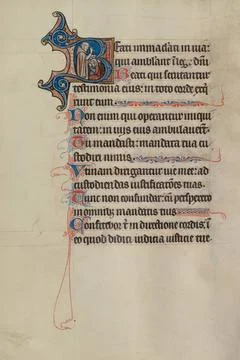 Beati immaculati in uia:
qui ambulant i lege dni
Beati qui scrutantur
testimonia eius: in toto corde exq
runt eum
Non enim qui operantur iniqui
tatem: in uijs eius ambulauert
Tu mandasti: mandata tua cu
stodiri nimis
Vtinam dirigantur uie mee: ad
custodiendas iustificatoes tuas
Tunc non confundar: cu perspexero
in omnibz mandatis tuis
Confitebor t in directione cordis: i
eo quod didici iudicia iusticie tue.